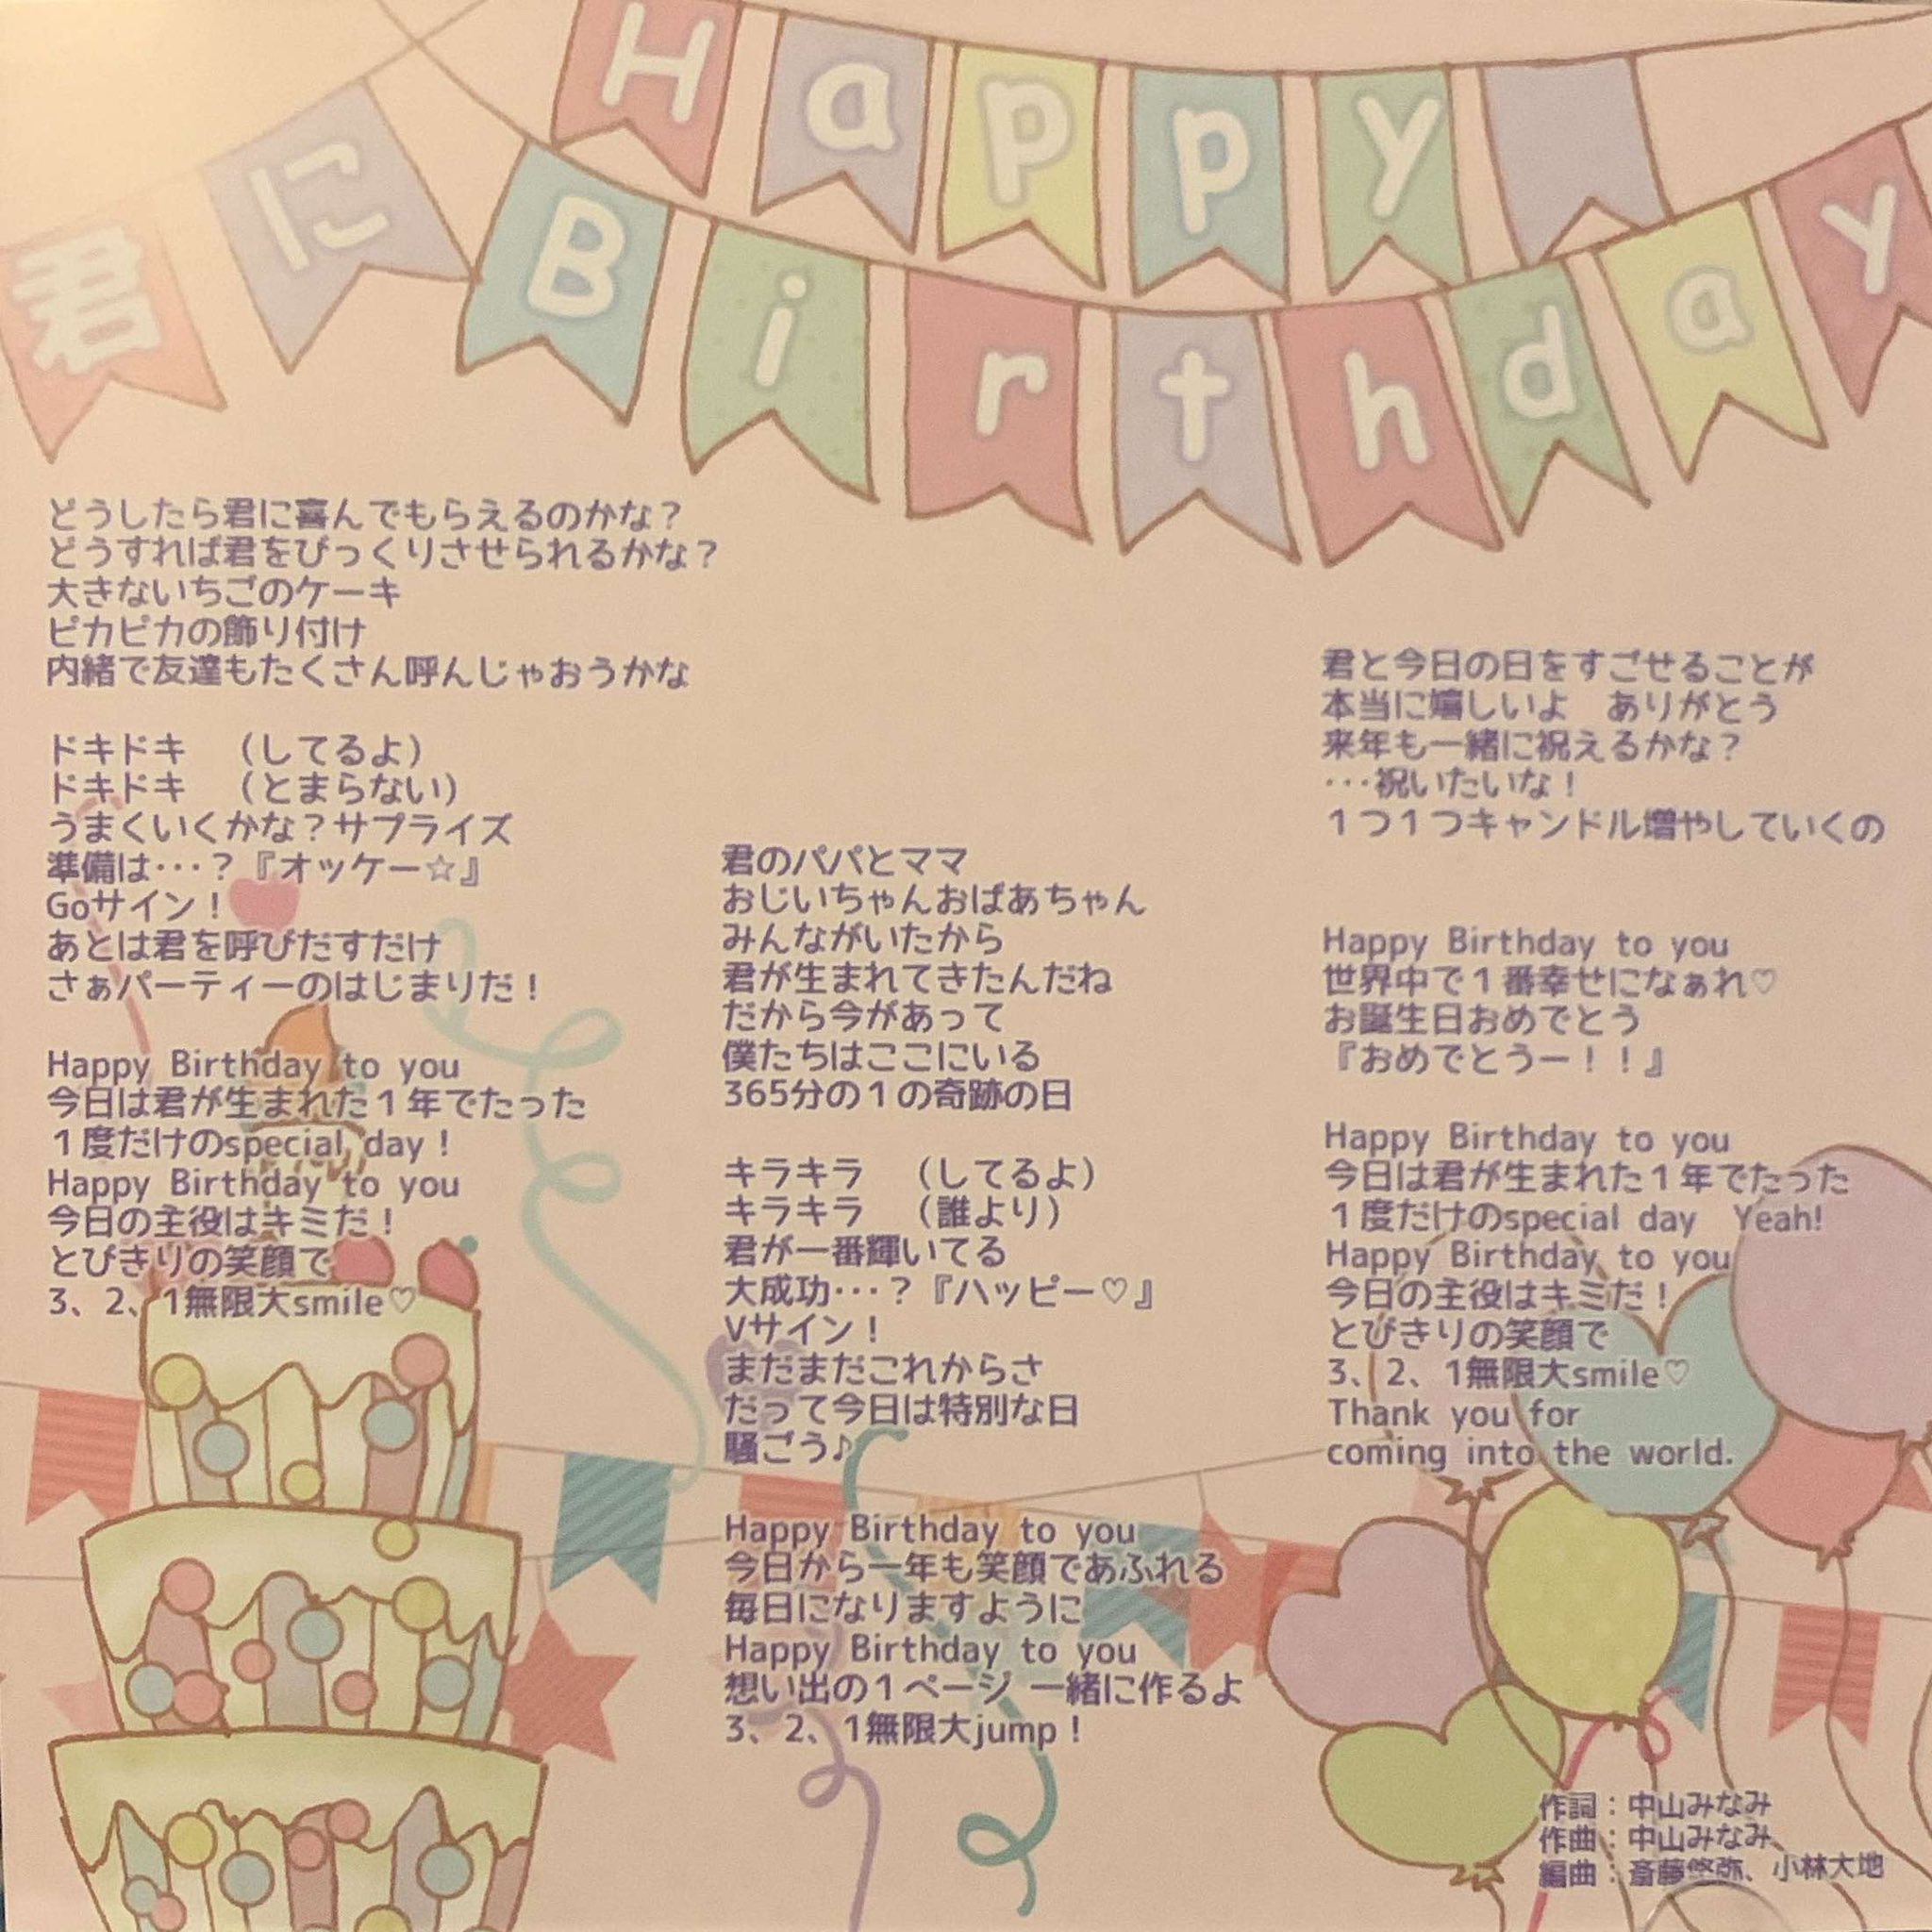 君に
Happy
Birthday
どうしたら君に喜んでもらえるのかな？
どうすれば君をびっくりさせられるかな？
大きないちごのケーキ
ピカピカの飾り付け
内緒で友達もたくさん呼んじゃおうかな
ドキドキ　（してるよ）
ドキドキ　（とまらない）
うまくいくかな？サプライズ
準備は･･･？『オッケー☆』
Goサイン！
あとは君を呼びだすだけ
さぁパーティーのはじまりだ！
Happy Birthday to you
今日は君が生まれた１年でたった
１度だけのspecial day！
Happy Birthday to you
今日の主役はキミだ！
とびきりの笑顔で
3、2、1無限大smile♡
君のパパとママ
おじいちゃんおばあちゃん
みんながいたから
君が生まれてきたんだね
だから今があって
僕たちはここにいる
365分の１の奇跡の日
キラキラ　（してるよ）
キラキラ　（誰より）
君が一番輝いてる
大成功･･･？『ハッピー♡』
Vサイン！
まだまだこれからさ
だって今日は特別な日
騒ごう♪
Happy Birthday to you
今日から一年も笑顔であふれる
毎日になりますように
Happy Birthday to you
想い出の１ページ 一緒に作るよ
3、2、1無限大jump！
君と今日の日をすごせることが
本当に嬉しいよ　ありがとう
来年も一緒に祝えるかな？
･･･祝いたいな！
１つ１つキャンドル増やしていくの
Happy Birthday to you
世界中で１番幸せになぁれ♡
お誕生日おめでとう
『おめでとうー！！』
Happy Birthday to you
今日は君が生まれた１年でたった
１度だけのspecial day　Yeah!
Happy Birthday to you
今日の主役はキミだ！
とびきりの笑顔で
3、2、1無限大smile♡
Thank you for
coming into the world.
作詞：中山みなみ
作曲：中山みなみ
編曲：斎藤悠弥、小林大地